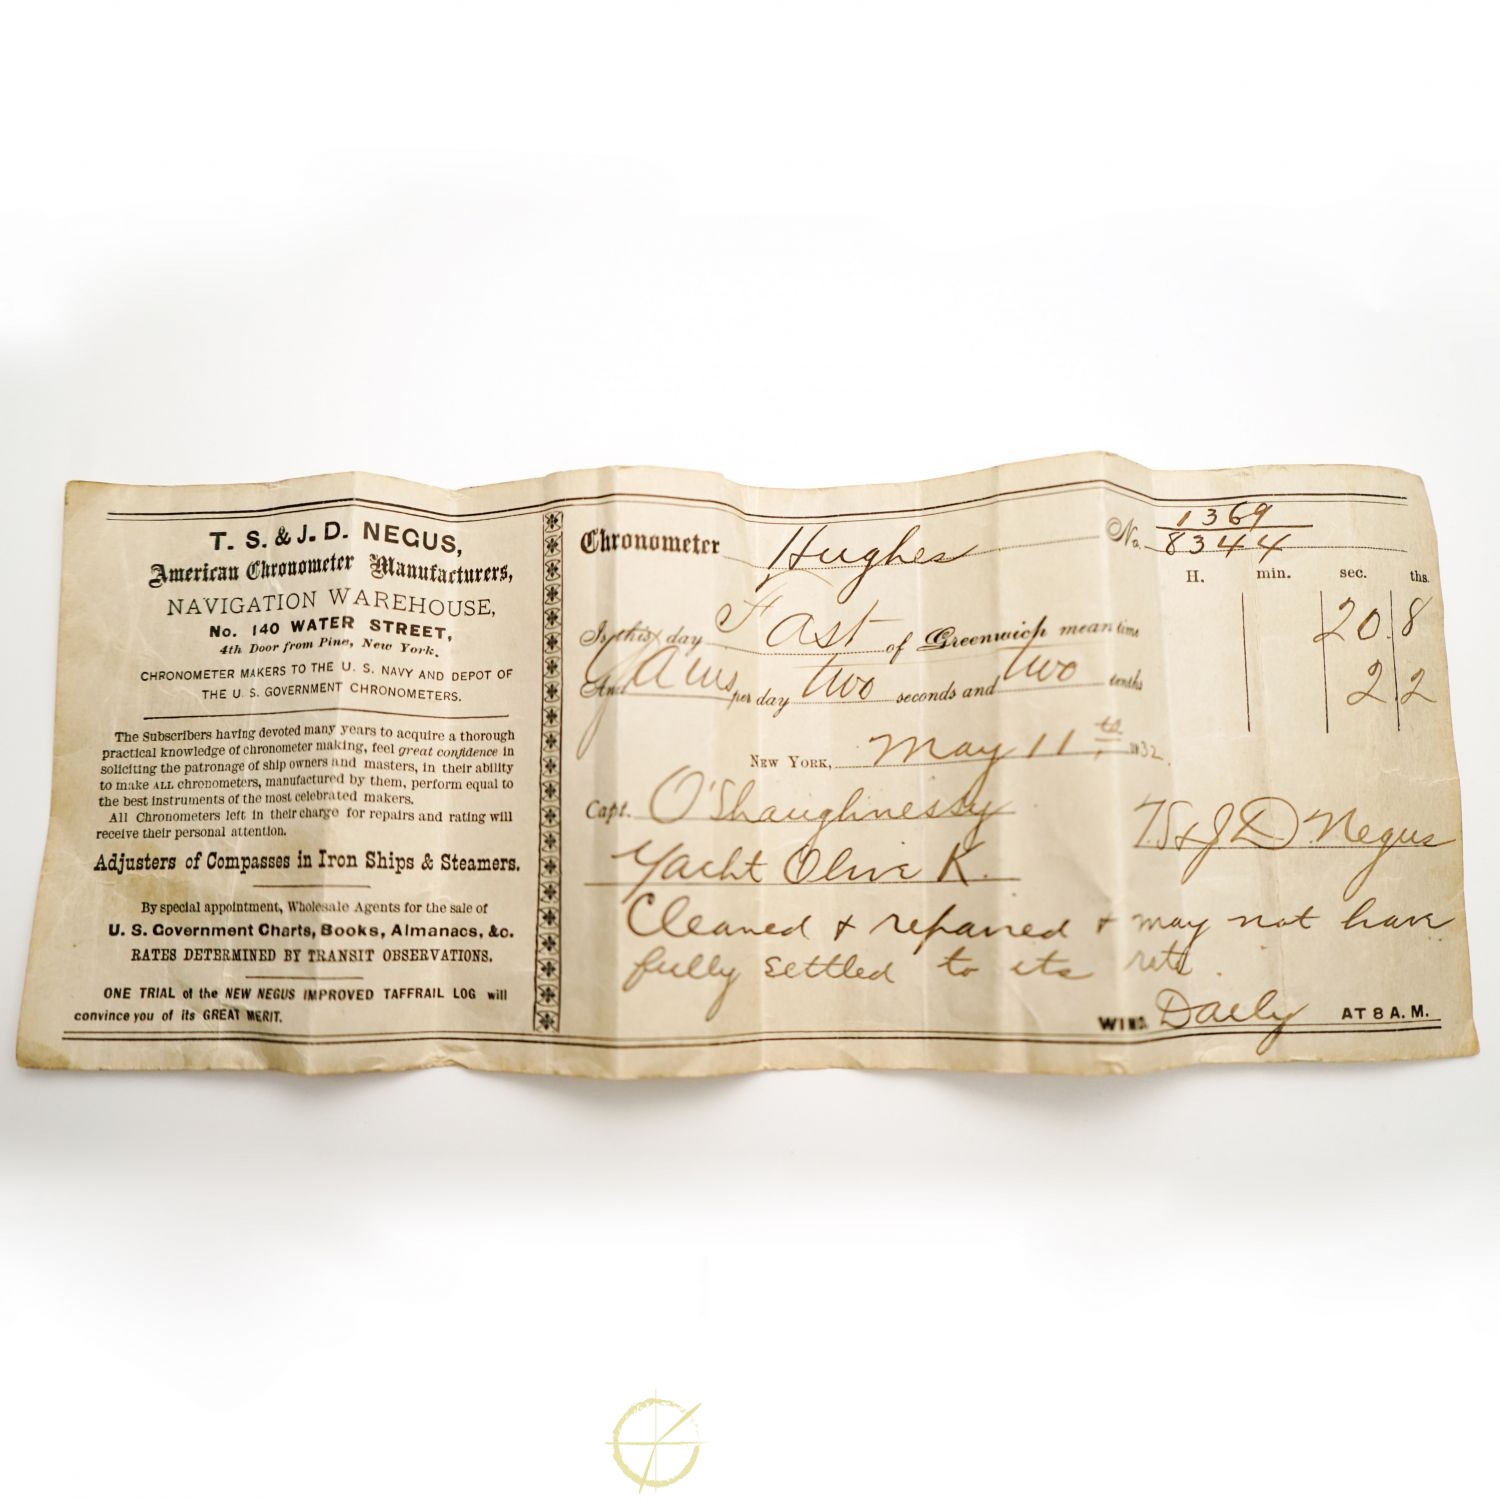 T. S. & J. D. NEGUS,
American Chronometer Manufacturers,
NAVIGATION WAREHOUSE,
No. 140 WATER STREET,
4th Door from Pine, New York.
CHRONOMETER MAKERS TO THE U. S. NAVY AND DEPOT OF
THE U. S. GOVERNMENT CHRONOMETERS.
The Subscribers having devoted many years to acquire a thorough
practical knowledge of chronometer making, feel great confidence in
soliciting the patronage of ship owners and masters, in their ability
to make ALL chronometers, manufactured by them, perform equal to
the best instruments of the most celebrated makers.
All Chronometers left in their charge for repairs and rating will
receive their personal attention.
Adjusters of Compasses in Iron Ships & Steamers.
By special appointment, Wholesale Agents for the sale of
U. S. Government Charts, Books, Almanacs, &c.
RATES DETERMINED BY TRANSIT OBSERVATIONS.
ONE TRIAL of the NEW NEGUS IMPROVED TAFFRAIL LOG will
convince you of its GREAT MERIT.
Chronometer Hughes No. 1369
8344
H. min. sec. ths.
Is this day Fast of Greenwich mean time 20.8
And gains per day two seconds and two tenths 2 2
NEW YORK, May 11 32.
Capt. O'Shaughnessy T.S & J D. Negus
Yacht Olive K.
Cleaned & repaired & may not have
fully settled to its rate.
WIND Daily AT 8 A. M.